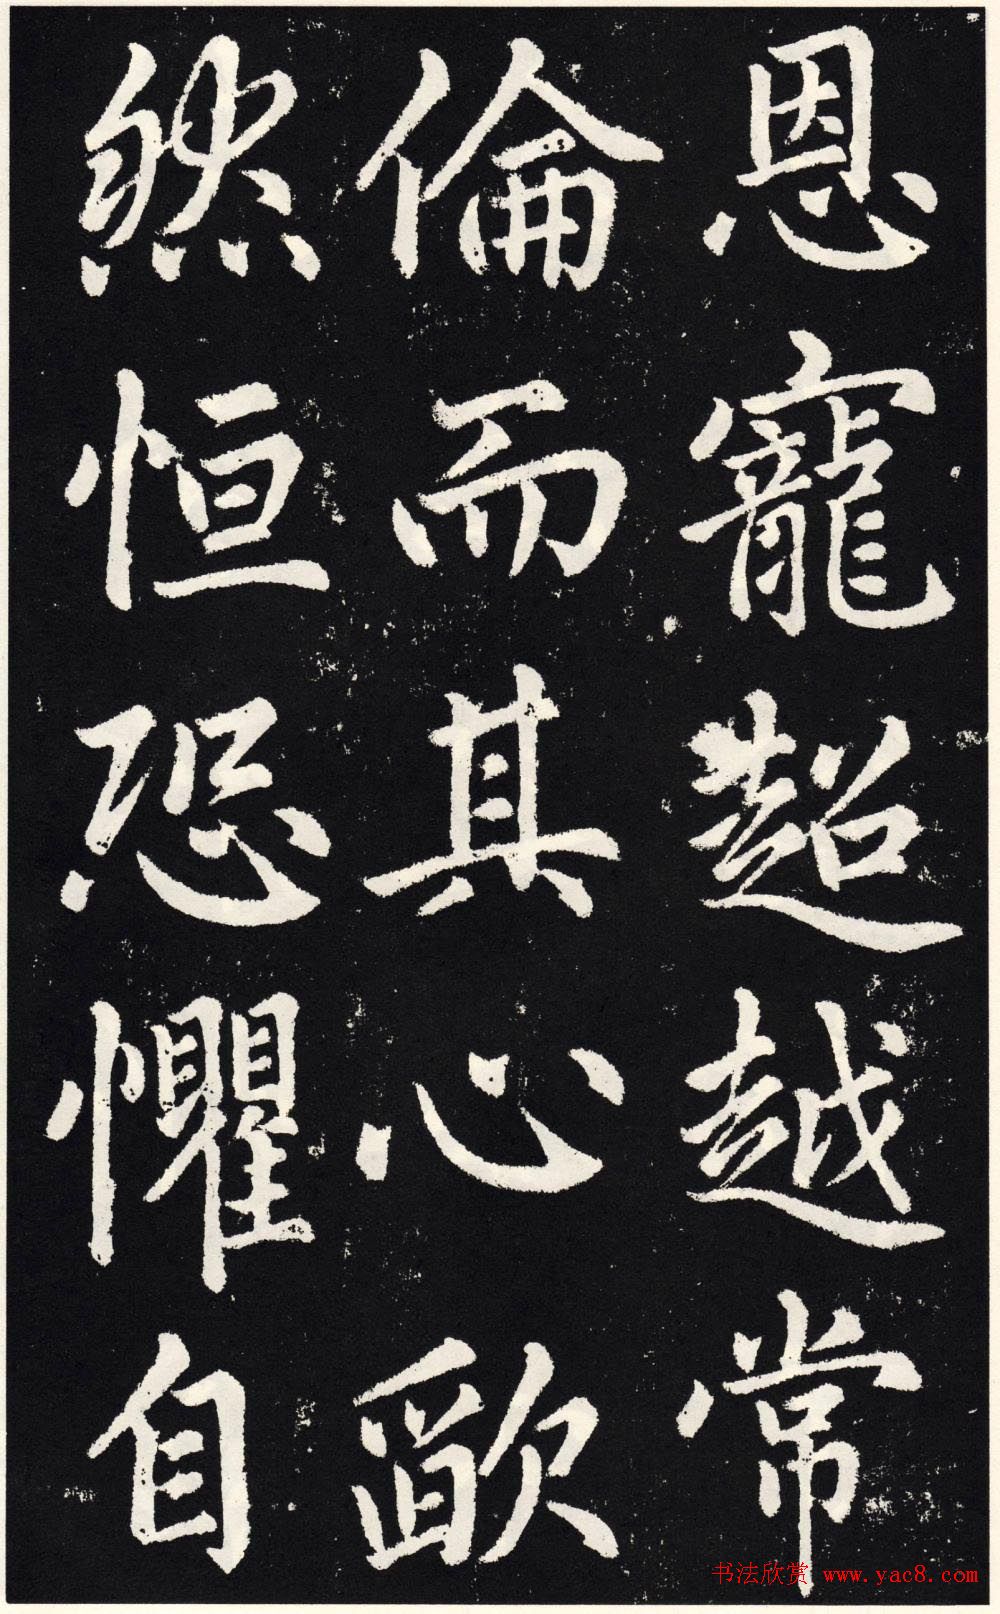 恩寵超越常
倫而其心欿
然恒恐懼自
书法欣赏 www.yac8.com